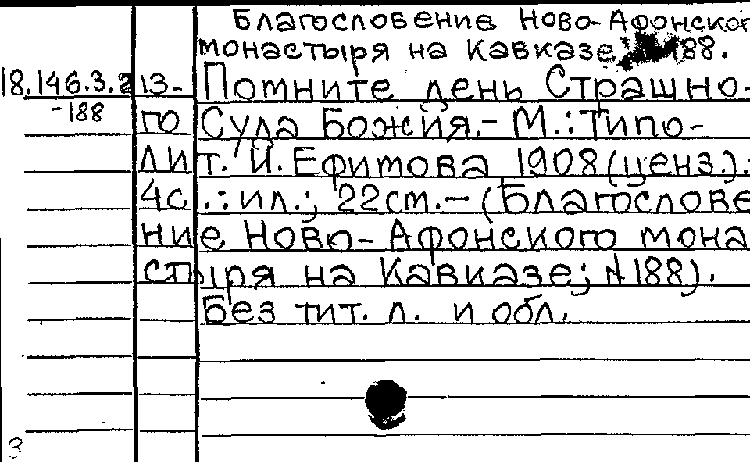 Благословение Ново-Афонског
монастыря на Кавказе 188.
18.146.3.2 13- Помните день Страшно-
-188 го Суда Божия.- М.: Типо-
лит. И. Ефимова, 1908 (ценз.).
4с.: ил.; 22см.- (Благослове
ние Ново-Афонского мона
стыря на Кавказе; №188).
Без тит. л. и обл.
3